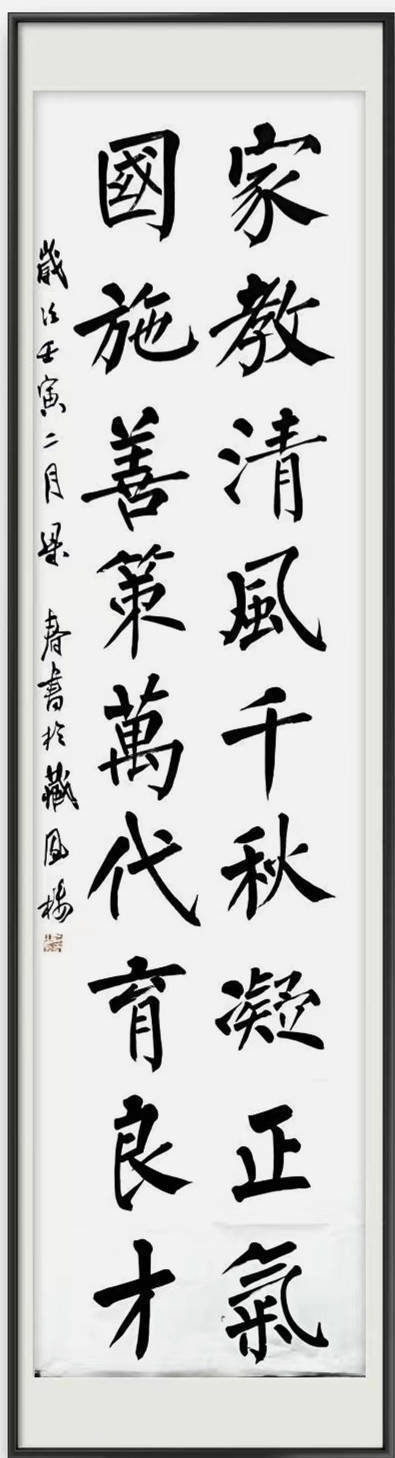 家教清風千秋凝正氣
國施善策萬代育良才
歲次壬寅二月梁春書於藏風樓